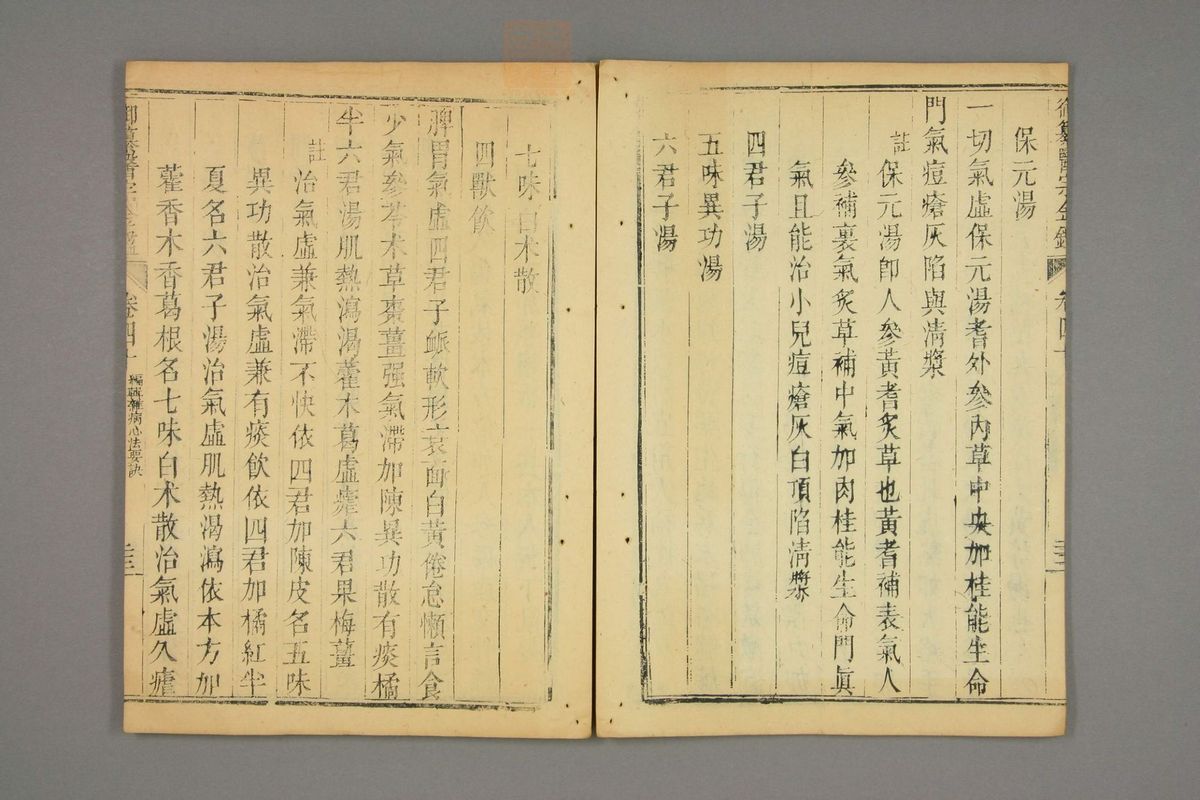 保元湯
一切氣虛保元湯耆外參內草中央加桂能生命
門氣痘瘡灰陷與清漿
註保元湯即人參黃耆炙草也黃耆補表氣人
參補裏氣炙草補中氣加肉桂能生命門眞
氣且能治小兒痘瘡灰白頂陷淸漿
四君子湯
五味異功湯
六君子湯
七味白朮散
四獸飲
脾胃氣虛四君子脈軟形衰面白黃倦怠懶言食
少氣參苓朮草棗薑强氣滯加陳異功散有痰橘
半六君湯肌熱瀉渴藿木葛虛瘧六君果梅薑
註治氣虛兼氣滯不快依四君加陳皮名五味
異功散治氣虛兼有痰飲依四君加橘紅半
夏名六君子湯治氣虛肌熱渴瀉依本方加
藿香木香葛根名七味白朮散治氣虛久瘧
御纂醫宗金鑑
卷四十
編輯雜病心法要訣